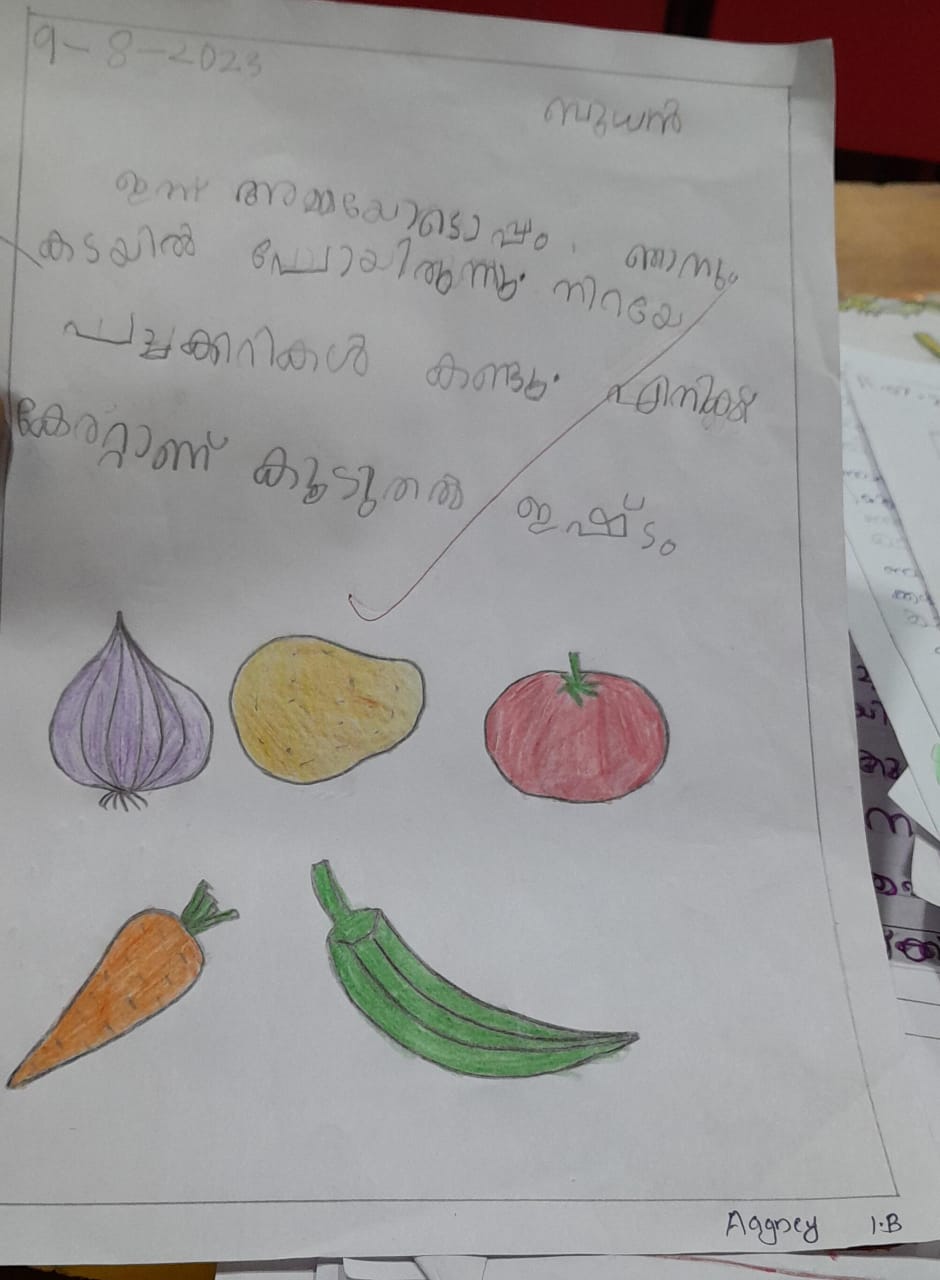 9-8-2023
ബുധൻ
ഇന്ന് അമ്മയോടൊപ്പം ഞാനും
കടയിൽ പോയിരുന്നു. നിറയെ
പച്ചക്കറികൾ കണ്ടു. എനിക്ക്
കേരറ്റാണ് കൂടുതൽ ഇഷ്ടം
Aggney 1.B